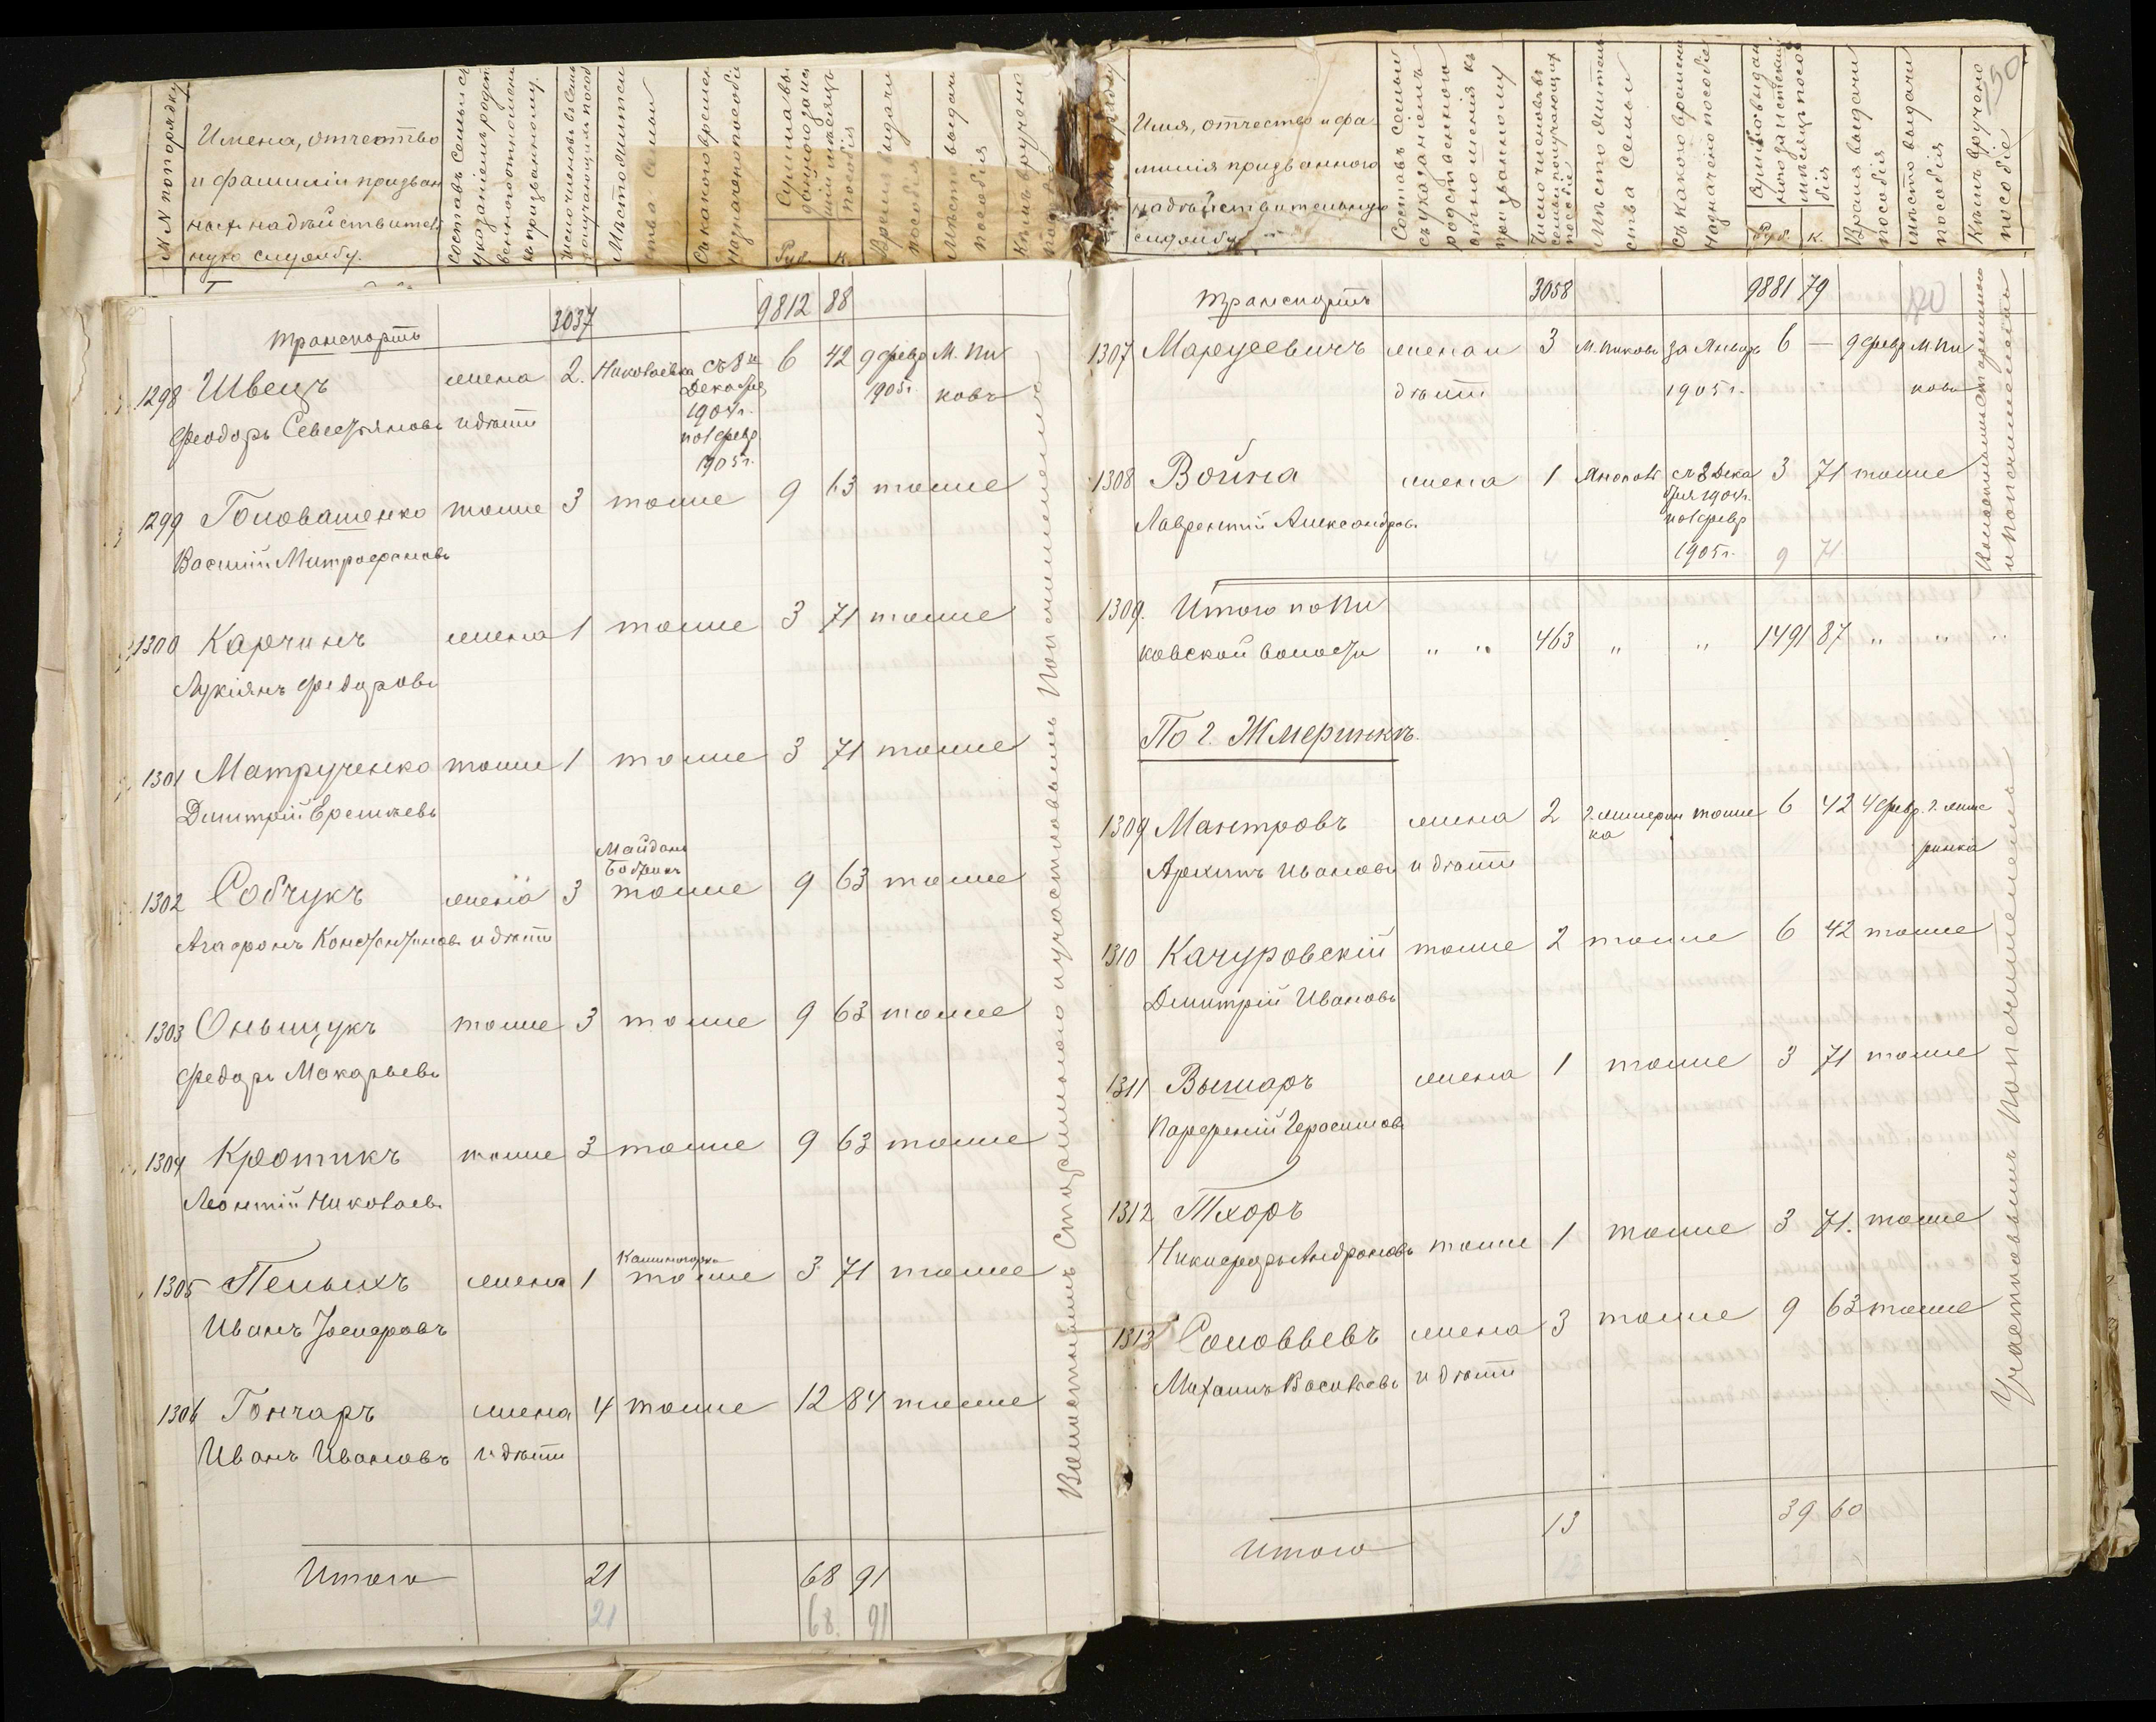 №№ по порядку
Имена, отчество
и фамиліи призван
ныхъ на дѣйствитель
ную службу.
Составъ семьи съ
указаніемъ родст
веннаго отношенія
къ призванному.
Мѣстожитель
ства семьи
Съ какого времени
назначено пособіе
Руб. К.
Время выдачи
пособія
Мѣсто выдачи
пособія
Кѣмъ вручено
Транспортъ 3037 9812 88
1298 Швецъ жена 2. Николаевка съ 8го 6 42 9 февр М. Пи
Декабря 1905г. ковъ
Феодоръ Севастьяновъ и дѣти 1904г.
по 1 февр
1905г.
1299 Головашенко тоже 3 тоже 9 63 тоже
Василій Митрофановъ
1300 Карчинъ жена 1 тоже 3 71 тоже
Лукіянъ Федоровъ
1301 Матрученко тоже 1 тоже 3 71 тоже
Дмитрій Еремѣевъ
Майданъ
Бобрикъ
1302 Собчукъ жена 3 тоже 9 63 тоже
Агафонъ Константиновъ и дѣти
1303 Оныщукъ тоже 3 тоже 9 63 тоже
Федоръ Макарьевъ
1304 Кротикъ тоже 3 тоже 9 63 тоже
Леонтій Николаевъ
1305 Пелыхъ жена 1 тоже 3 71 тоже
Иванъ Іосифовъ
1306 Гончаръ жена 4 тоже 12 84 тоже
Иванъ Ивановъ и дѣти
Итого 21 68 91
21 68. 91
Волостнымъ Старшиною и участковымъ Попечителемъ
Имя, отчество и фа-
милія призваннаго
на дѣйствительную
службу
Составъ семьи
съ указаніемъ
родственнаго
отношенія къ
призванному
Число членовъ въ
семьи получающихъ
пособіе
Мѣстожитель
ства семьи
Съ какого времени
назначено пособіе
Руб. к.
Время выдачи
пособія
Мѣсто выдачи
пособія
Кѣмъ вручено
пособіе
150
Транспортъ 3058 9881 79
1307 Марцсевичъ жена и 3 М. Пиковъ за Январь 6 — 9 февр М. Пи
дѣти 1905г. ковъ
1308 Война жена 1 Яновъ съ 8 Дека 3 71 тоже
бря 1904г.
Лаврентій Александровъ по 1 февр
1905г. 9 71
Волостнымъ старшиною
и попечителемъ
1309. Итого по Пи
ковской волости " " 463 " " 1491 87 " " "
По г. Жмеринкѣ.
1309 Мантровъ жена 2 г. Жмерин тоже 6 42 4 февр. г. Жме
ка ринка
Архипъ Ивановъ и дѣти
1310 Качуровскій тоже 2 тоже 6 42 тоже
Дмитрій Ивановъ
1311 Вышаръ жена 1 тоже 3 71 тоже
Парфеній Герасимовъ
1312 Тхоръ
Никифоръ Андроновъ тоже 1 тоже 3 71. тоже
1313 Соловьевъ жена 3 тоже 9 63 тоже
Михаилъ Васильевъ и дѣти
Итого 13 39 60
Участковымъ Попечителемъ